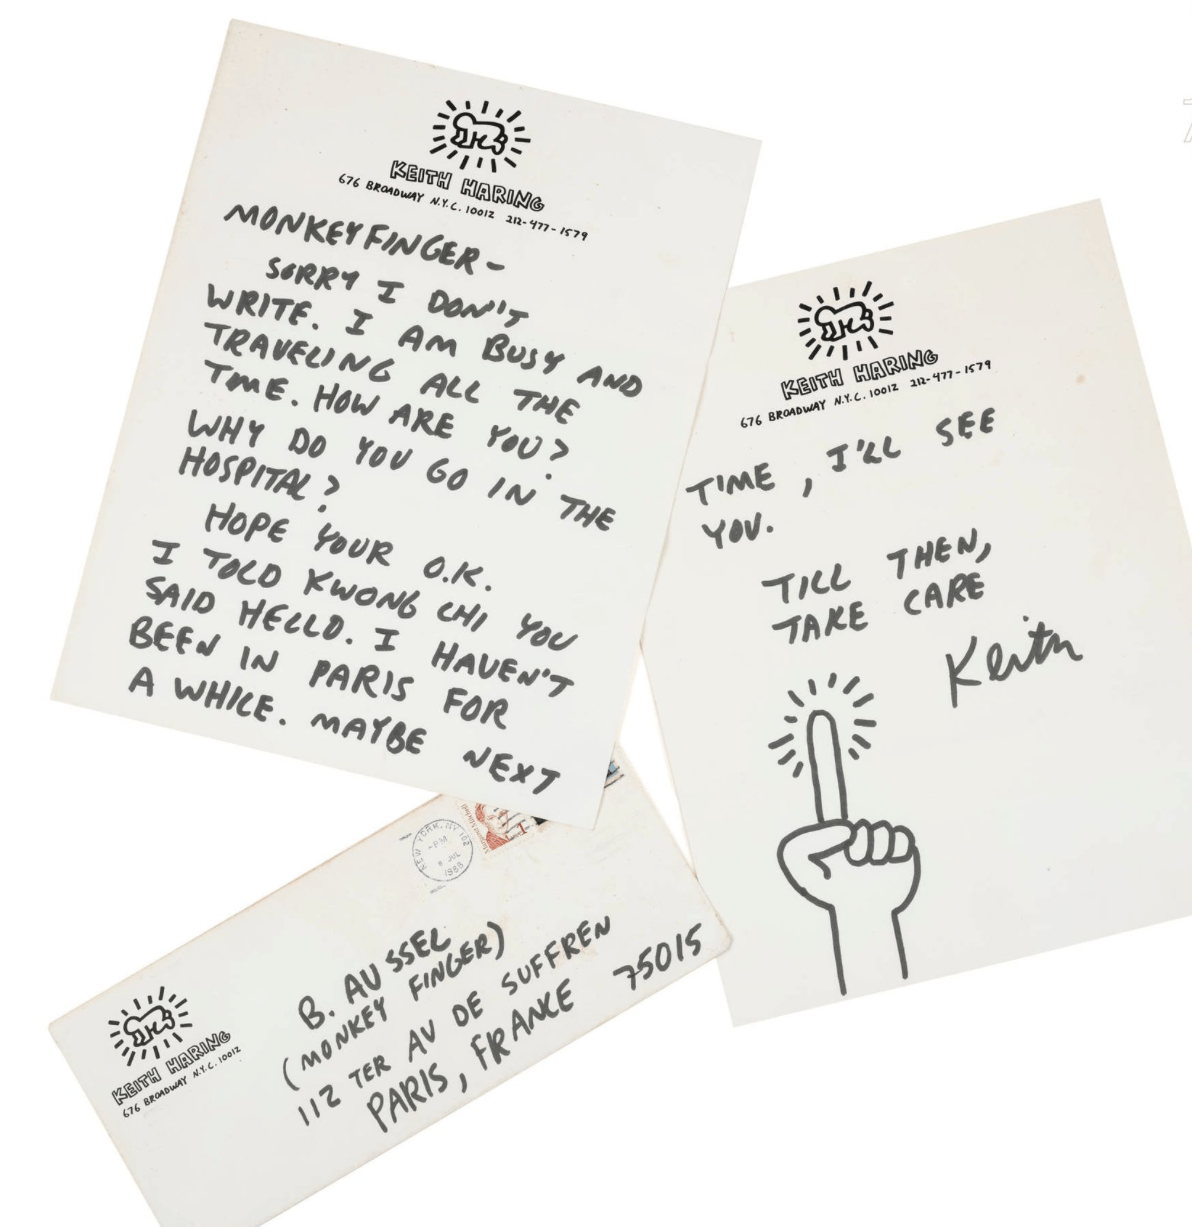 KEITH HARING
676 BROADWAY N.Y.C. 10012 212-477-1579
MONKEYFINGER-
SORRY I DON'T
WRITE. I AM BUSY AND
TRAVELING ALL THE
TIME. HOW ARE YOU?
WHY DO YOU GO IN THE
HOSPITAL?
HOPE YOUR O.K.
I TOLD KWONG CHI YOU
SAID HELLO. I HAVEN'T
BEEN IN PARIS FOR
A WHILE. MAYBE NEXT
KEITH HARING
676 BROADWAY N.Y.C. 10012 212-477-1579
TIME, I'LL SEE
YOU.
TILL THEN,
TAKE CARE
Keith
NEW YORK, NY 102
PM
8 JUL
KEITH HARING
676 BROADWAY N.Y.C. 10012
B. AUSSEL
(MONKEY FINGER)
112 TER AV DE SUFFREN
PARIS, FRANCE 75015